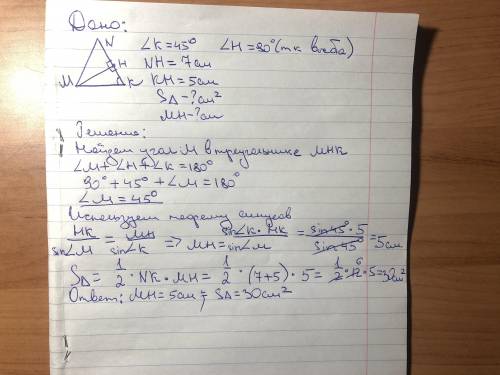 Дано:
N
H
M
K
∠K=45° ∠H=90° (тк высота)
NH=7см
KH=5см
S∆-?см²
MH-?см
Решение:
Найдем угол M в треугольнике MHK
∠M+∠H+∠K=180°
90°+45°+∠M=180°
∠M=45°
Используем теорему синусов
HK/sin∠M = MH/sin∠K => MH = sin∠K·HK/sin∠M = sin45°·5/sin45° = 5см
S∆ = 1/2 · NK · MH = 1/2 · (7+5) · 5 = 1/2 · 12 6 · 5 = 30см²
Ответ: MH=5см; S∆=30см²